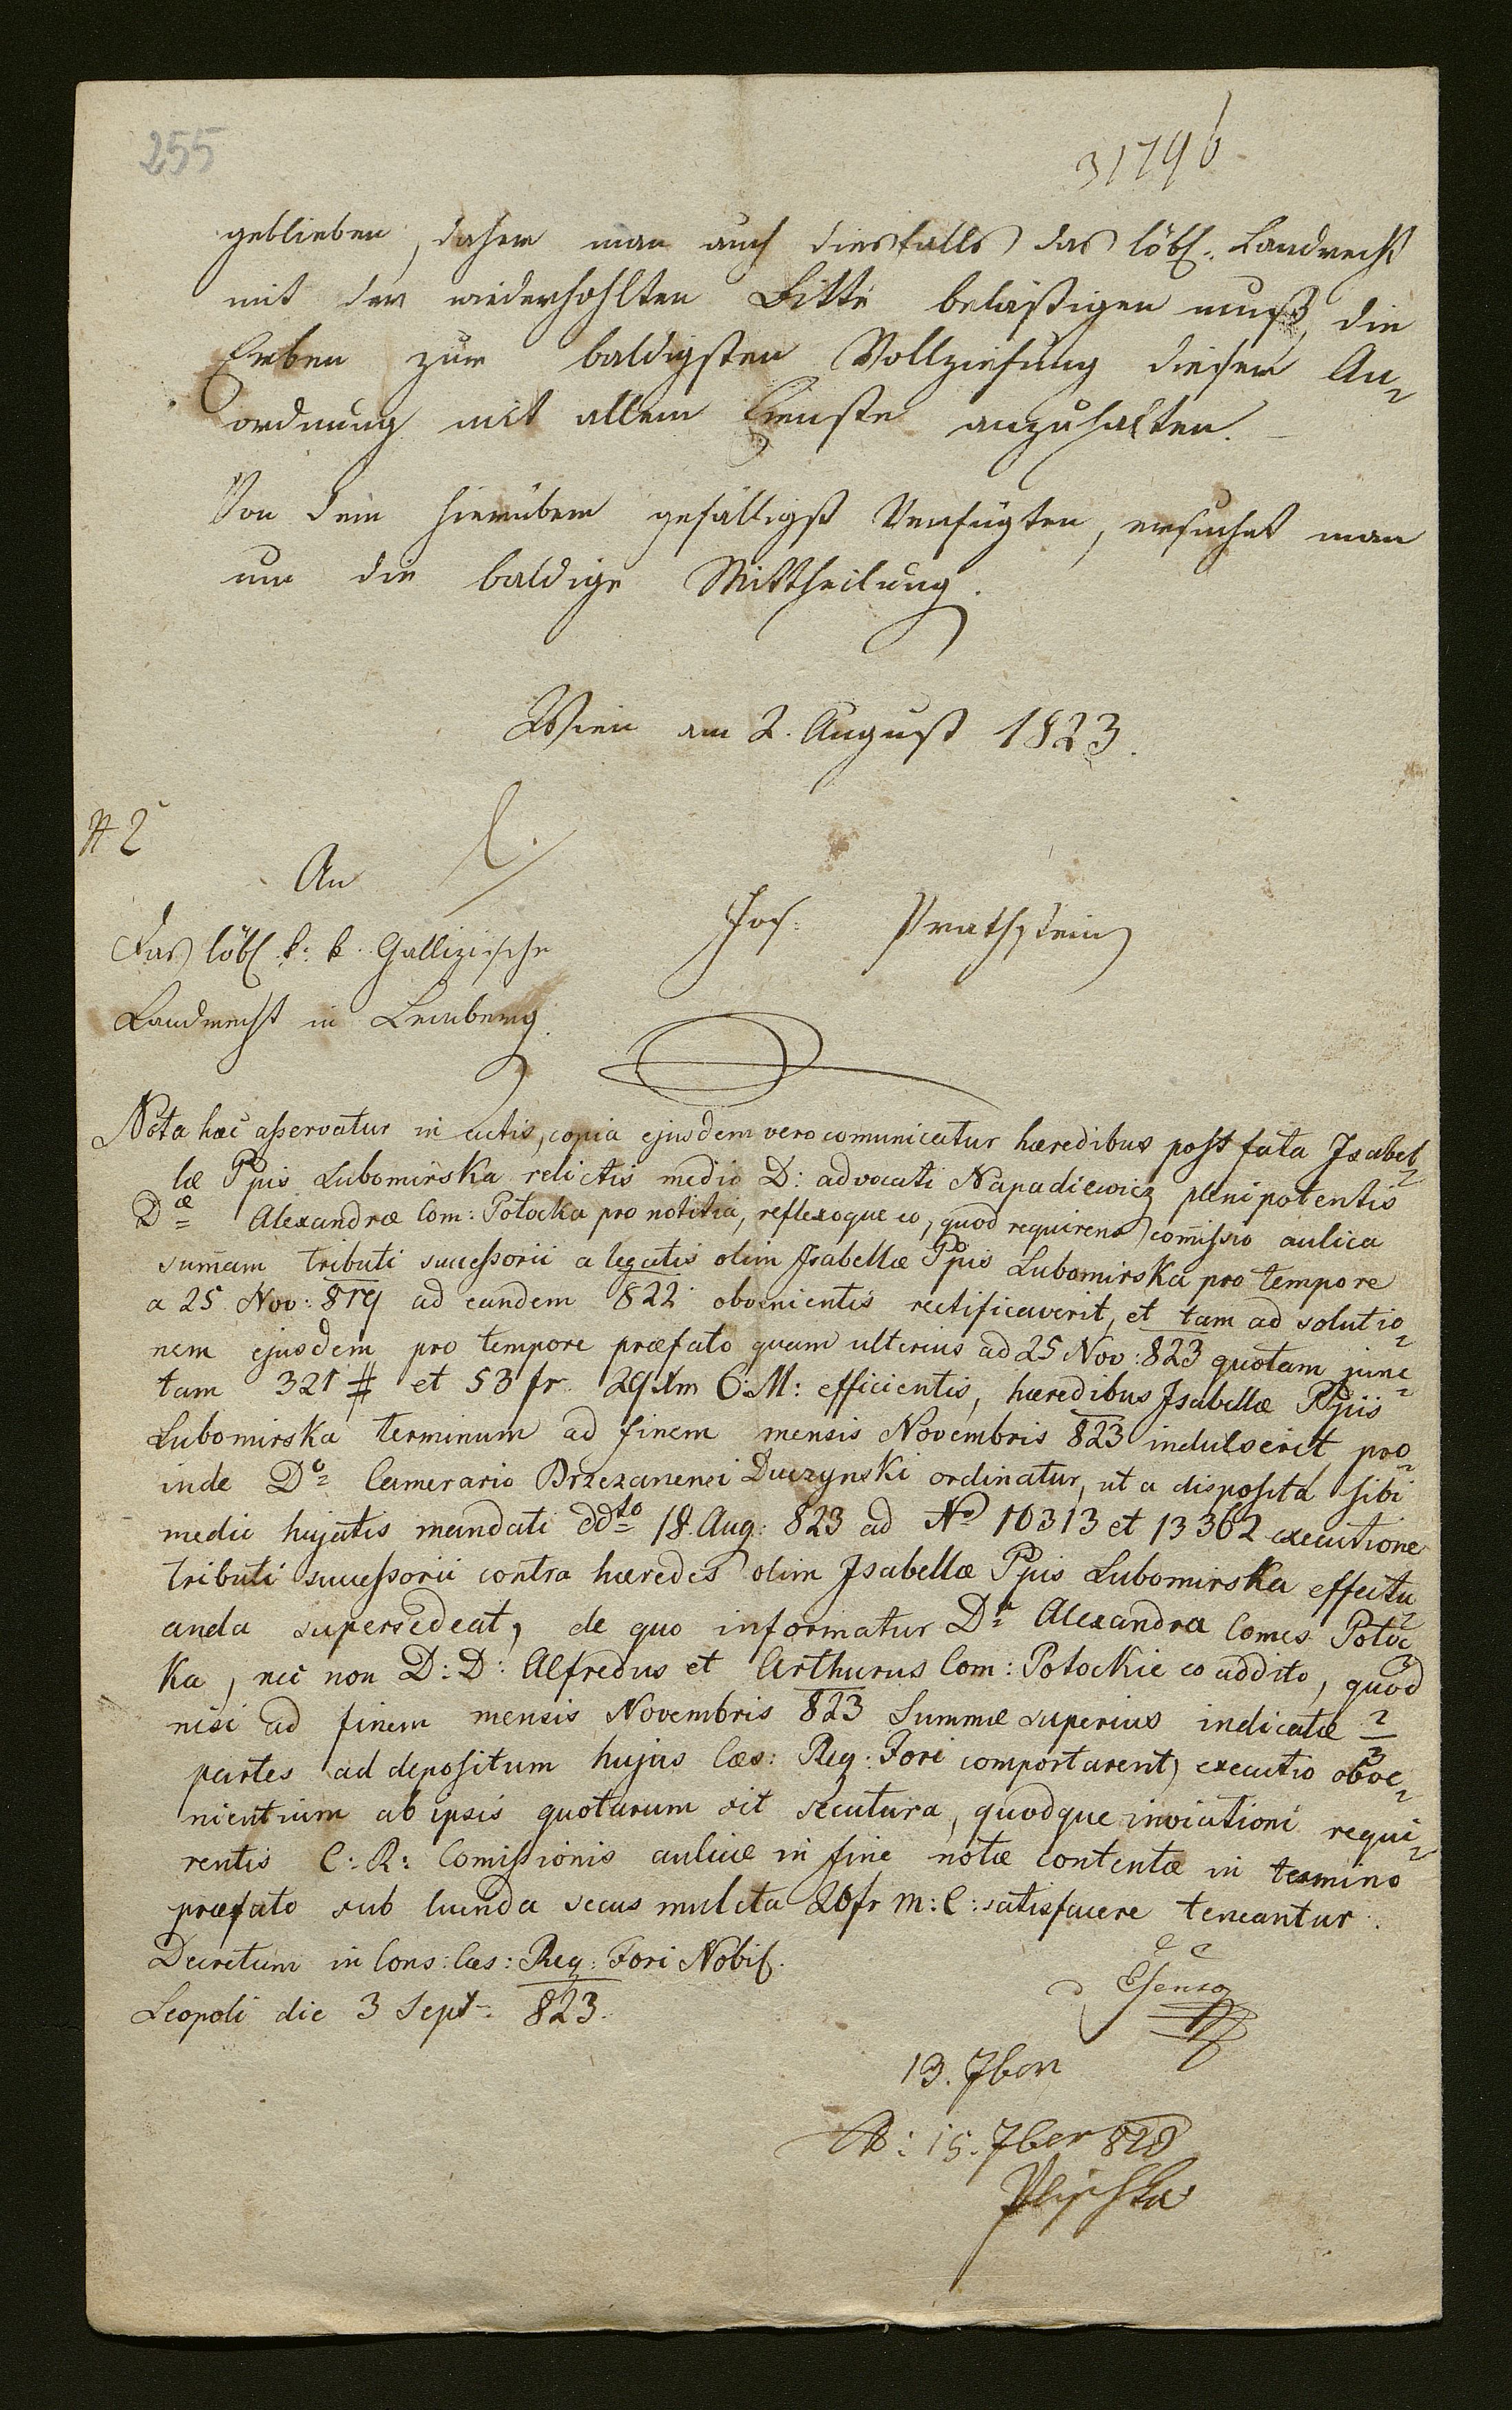 255
31796
geblieben, daher man auch diesfalls das löbl. Landrecht
mit der wiederhohlten Bitte belästigen muß, die
Erben zur baldigsten Vollziehung dieser An=
ordnung mit allem Ernste anzuhalten.
Von dem hierüber gefälligst Verfügten, ersuchet man
um die baldige Mittheilung.
Wien am 2. August 1823.
An
Das löbl. k. k. Gallizische
Landrecht in Lemberg.
Nota hæc asservatur in actis, copia ejusdem vero comunicatur hæredibus post fata Isabel=
læ Ppis Lubomirska relictis medio D: advocati Napadiewicz plenipotentis
Dæ Alexandræ Com: Potocka pro notitia, reflexoque eo, quod requirens comissio aulica
sumam tributi successorii a legatis olim Isabellæ Ppis Lubomirska pro tempore
a 25 Nov: 819 ad eundem 822 obvenientis rectificaverit, et tam ad solutio=
nem ejusdem pro tempore præfato quam ulterius ad 25 Nov: 823 quotam junc=
tam 321 # et 53 fr. 29 Xm C:M: efficientis, hæredibus Isabellæ Ppis
Lubomirska terminum ad finem mensis Novembris 823 indulserit, pro=
inde Do Camerario Brzezanensi Duczynski ordinatur, ut a disposita sibi
medio hujatis mandati ddto 18. Aug: 823 ad No 10313 et 13362 executione
tributi successorii contra hæredes olim Isabellæ Ppis Lubomirska effectu=
anda supersedeat, de quo informatur Da Alexandra Comes Potoc=
ka, nec non D:D: Alfredus et Arthurus Com: Potockie eo addito, quod
nisi ad finem mensis Novembris 823 Summæ superius indicatæ 2/3
partes ad depositum hujus Cæs: Reg: Fori comportarent, executio obve=
nientium ab ipsis quotarum sit secutura, quodque inviationi requi=
rentis C:R: Comissionis aulicæ in fine notæ contentæ in termino
præfato sub luenda secus mulcta 20 fr m:C: satisfacere teneantur.
Decretum in Cons: Cæs: Reg: Fori Nobil.
Leopoli die 3 Sept: 823.
13. 7ber
15. 7ber 823